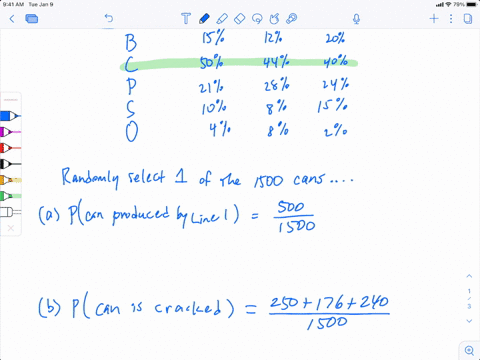 9:41 AM Tue Jan 9
79%
B 15% 12% 20%
C 50% 44% 40%
P 21% 28% 24%
S 10% 8% 15%
O 4% 8% 2%
Randomly select 1 of the 1500 cans....
(a) P(can produced by Line 1) = 500/1500
(b) P(can is cracked) = 250+176+240/1500
1
3